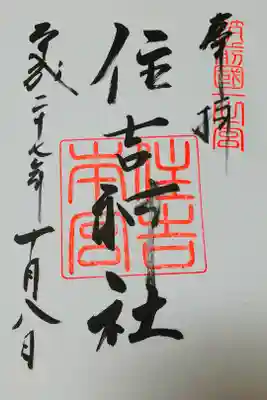 奉拝
筑前國一之宮
住吉神社
住吉本宮
平成二十七年十月八日